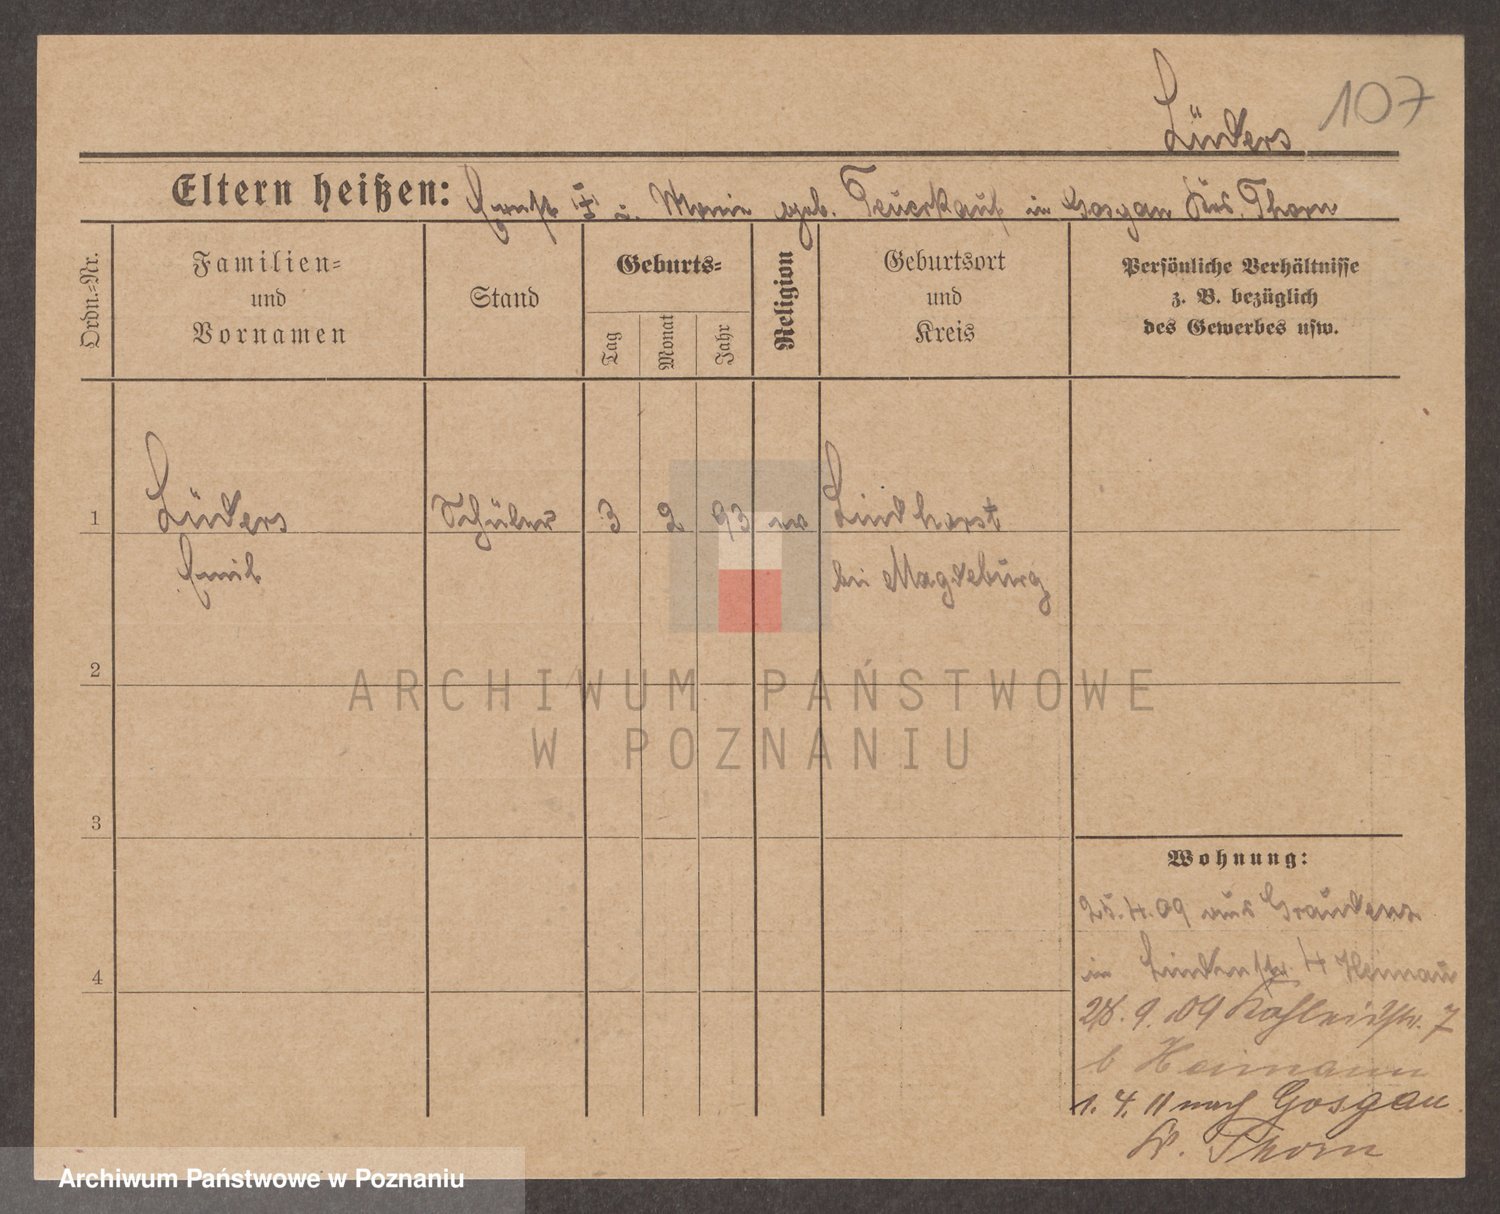 107
Lüders
Eltern heißen: Ernst † u. Marie geb. Feuerkauf in Gosgau Krs. Thorn
Ordn.=Nr.
Familien=
und
Vornamen
Stand
Geburts=
Tag
Monat
Jahr
Religion
Geburtsort
und
Kreis
Persönliche Verhältnisse
z. B. bezüglich
des Gewerbes usw.
1 Lüders Schüler 3 2 93 ev Lindhorst
Emil bei Magdeburg
2
3
4
Wohnung:
25.4.09 aus Graudenz
in Lindenstr. 4
28.9.09 7
b Heimann
1. 4. 11 nach Gosgau
Kr. Thorn
ARCHIWUM PAŃSTWOWE
W POZNANIU
Archiwum Państwowe w Poznaniu